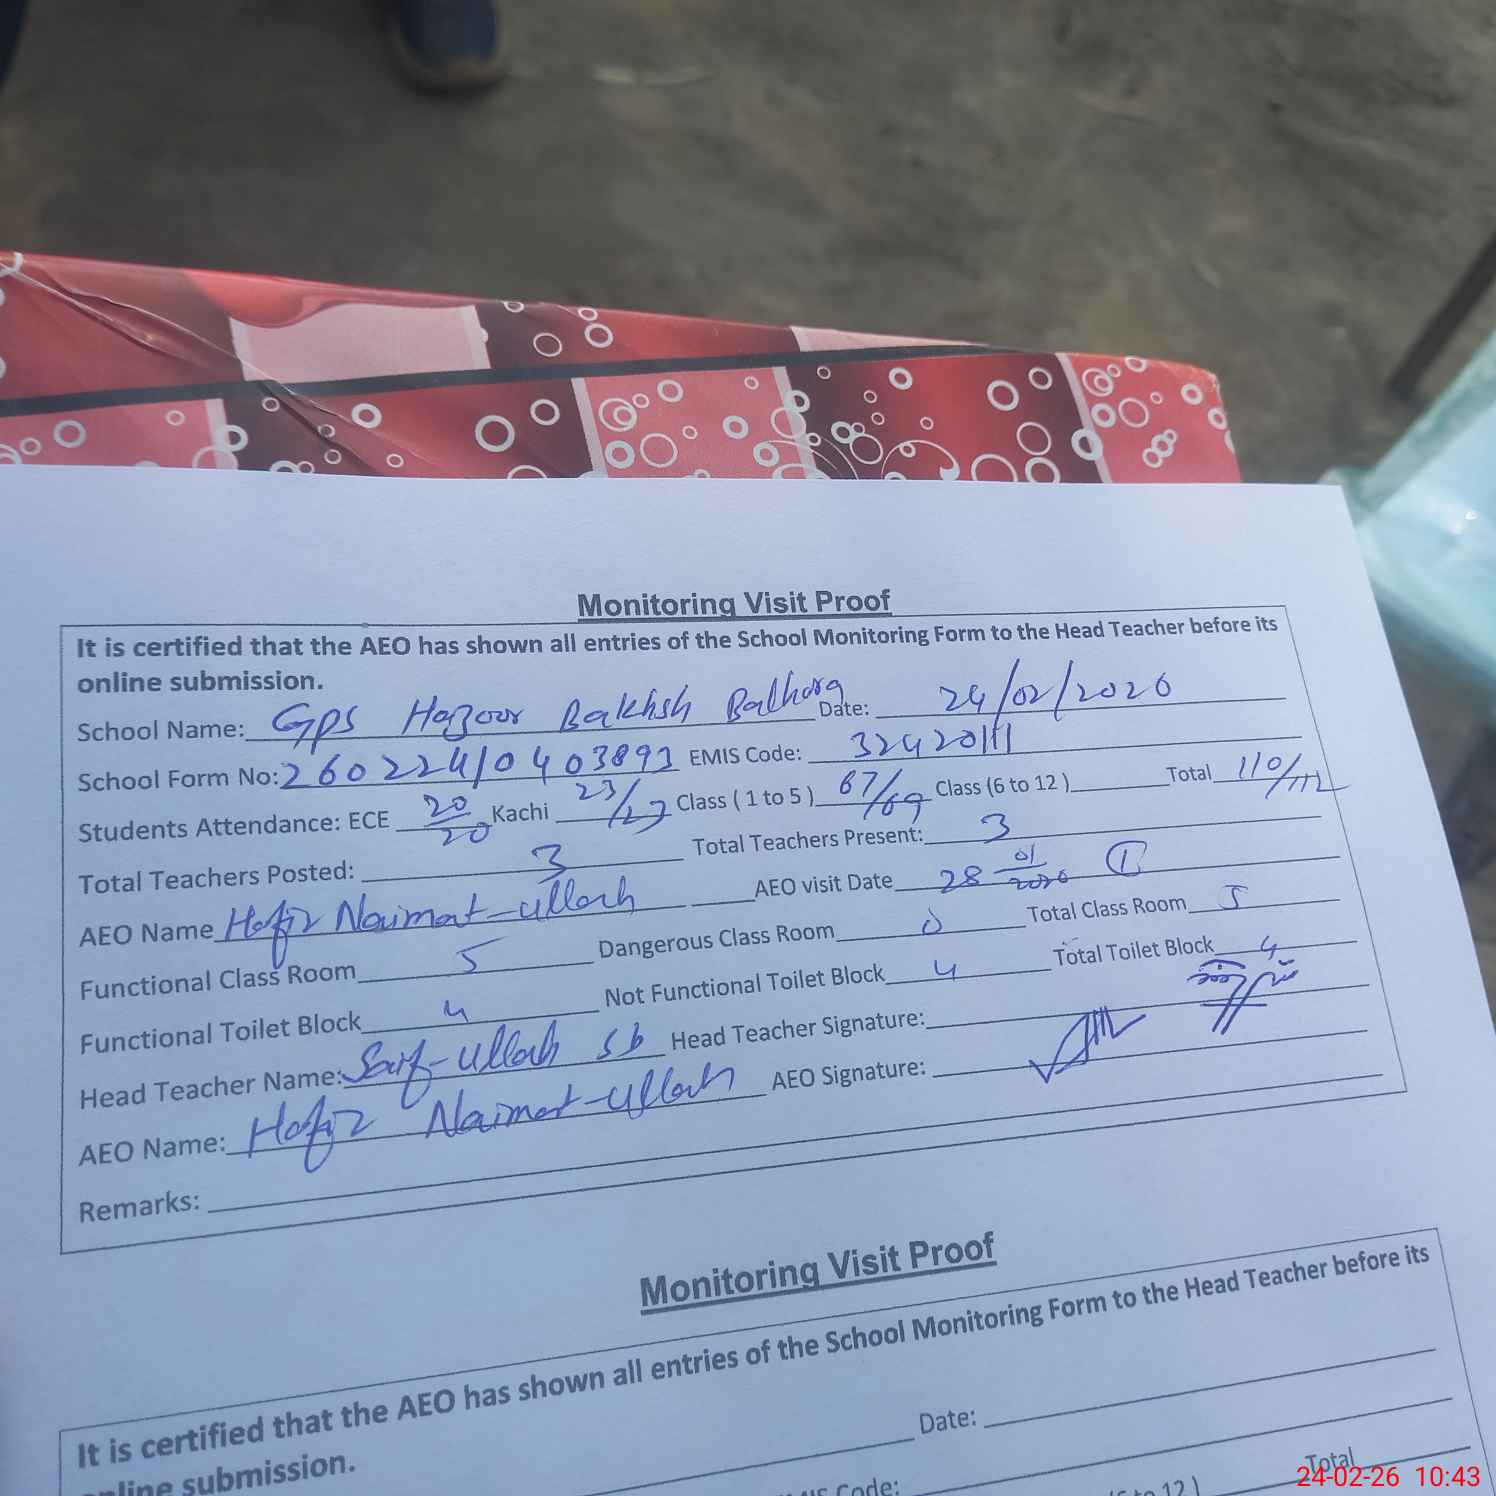 Monitoring Visit Proof
It is certified that the AEO has shown all entries of the School Monitoring Form to the Head Teacher before its
online submission.
School Name: GPS Hazoor Bakhsh Balhora Date: 24/02/2026
School Form No: 26022410403893 EMIS Code: 32420111
Students Attendance: ECE 20/20 Kachi 23/23 Class ( 1 to 5 ) 67/69 Class (6 to 12 ) Total 110/112
Total Teachers Posted: 3 Total Teachers Present: 3
AEO Name Hafiz Naimat-ullah AEO visit Date 28 01/2026 ①
Functional Class Room 5 Dangerous Class Room 0 Total Class Room 5
Functional Toilet Block 4 Not Functional Toilet Block 4 Total Toilet Block 4
Head Teacher Name: Saif-ullah sb Head Teacher Signature:
AEO Name: Hafiz Naimat-ullah AEO Signature:
Remarks:
Monitoring Visit Proof
It is certified that the AEO has shown all entries of the School Monitoring Form to the Head Teacher before its
online submission.
Date:
Code:
to 12 ) Total
24-02-26 10:43